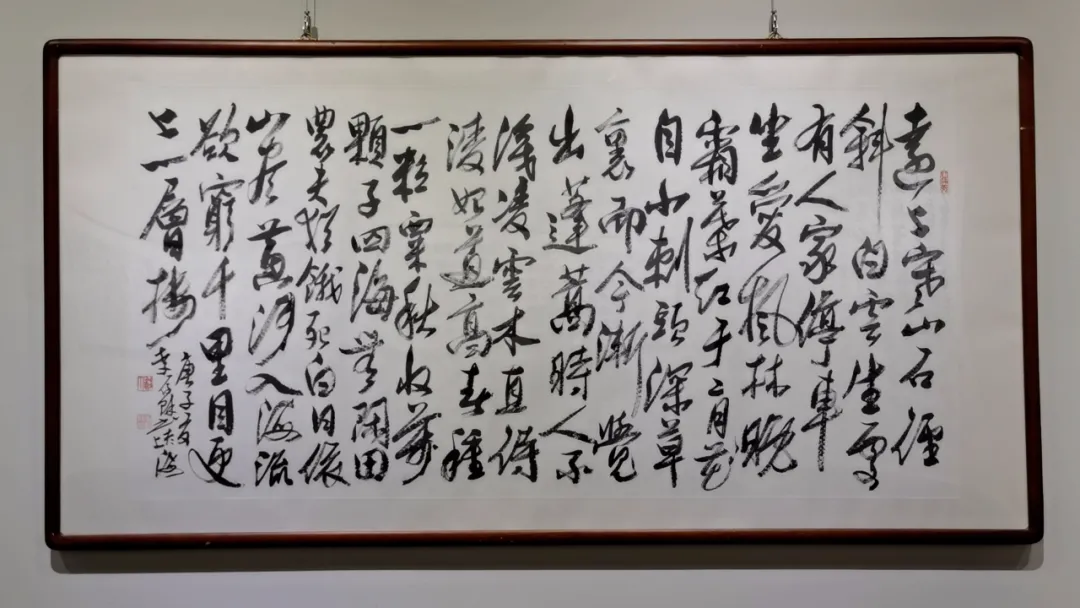 遠上寒山石徑
斜白雲生處
有人家停車
坐愛楓林晚
霜葉紅于二月花
自小刺頭深草
裏而今漸覺
出蓬蒿時人不
識凌雲木直待
凌始道高春種
一粒粟秋收萬
顆子四海無閑田
農夫猶餓死白日依
山盡黃河入海流
欲窮千里目更
上一層樓
庚子夏
李